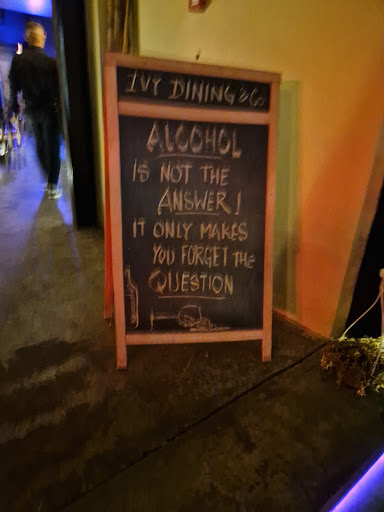 IVY DINING & Co
ALCOHOL
IS NOT THE
ANSWER!
IT ONLY MAKES
YOU FORGET THE
QUESTION